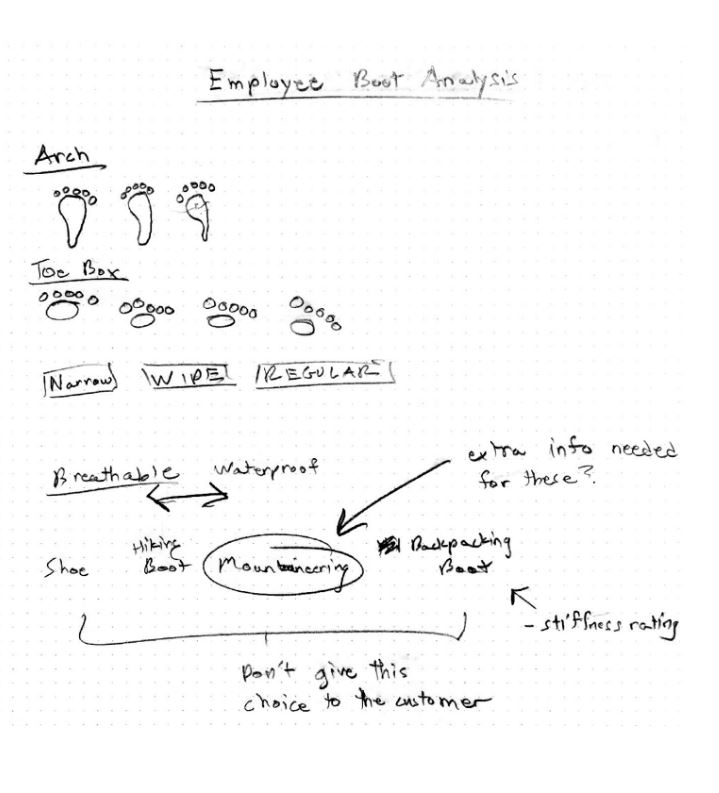 Employee Boot Analysis
Arch
Toe Box
Narrow WIDE REGULAR
Breathable Waterproof
extra info needed
for these?
Shoe
Hiking
Boot
Mountaineering
Backpacking
Boot
- stiffness rating
Don't give this
choice to the customer